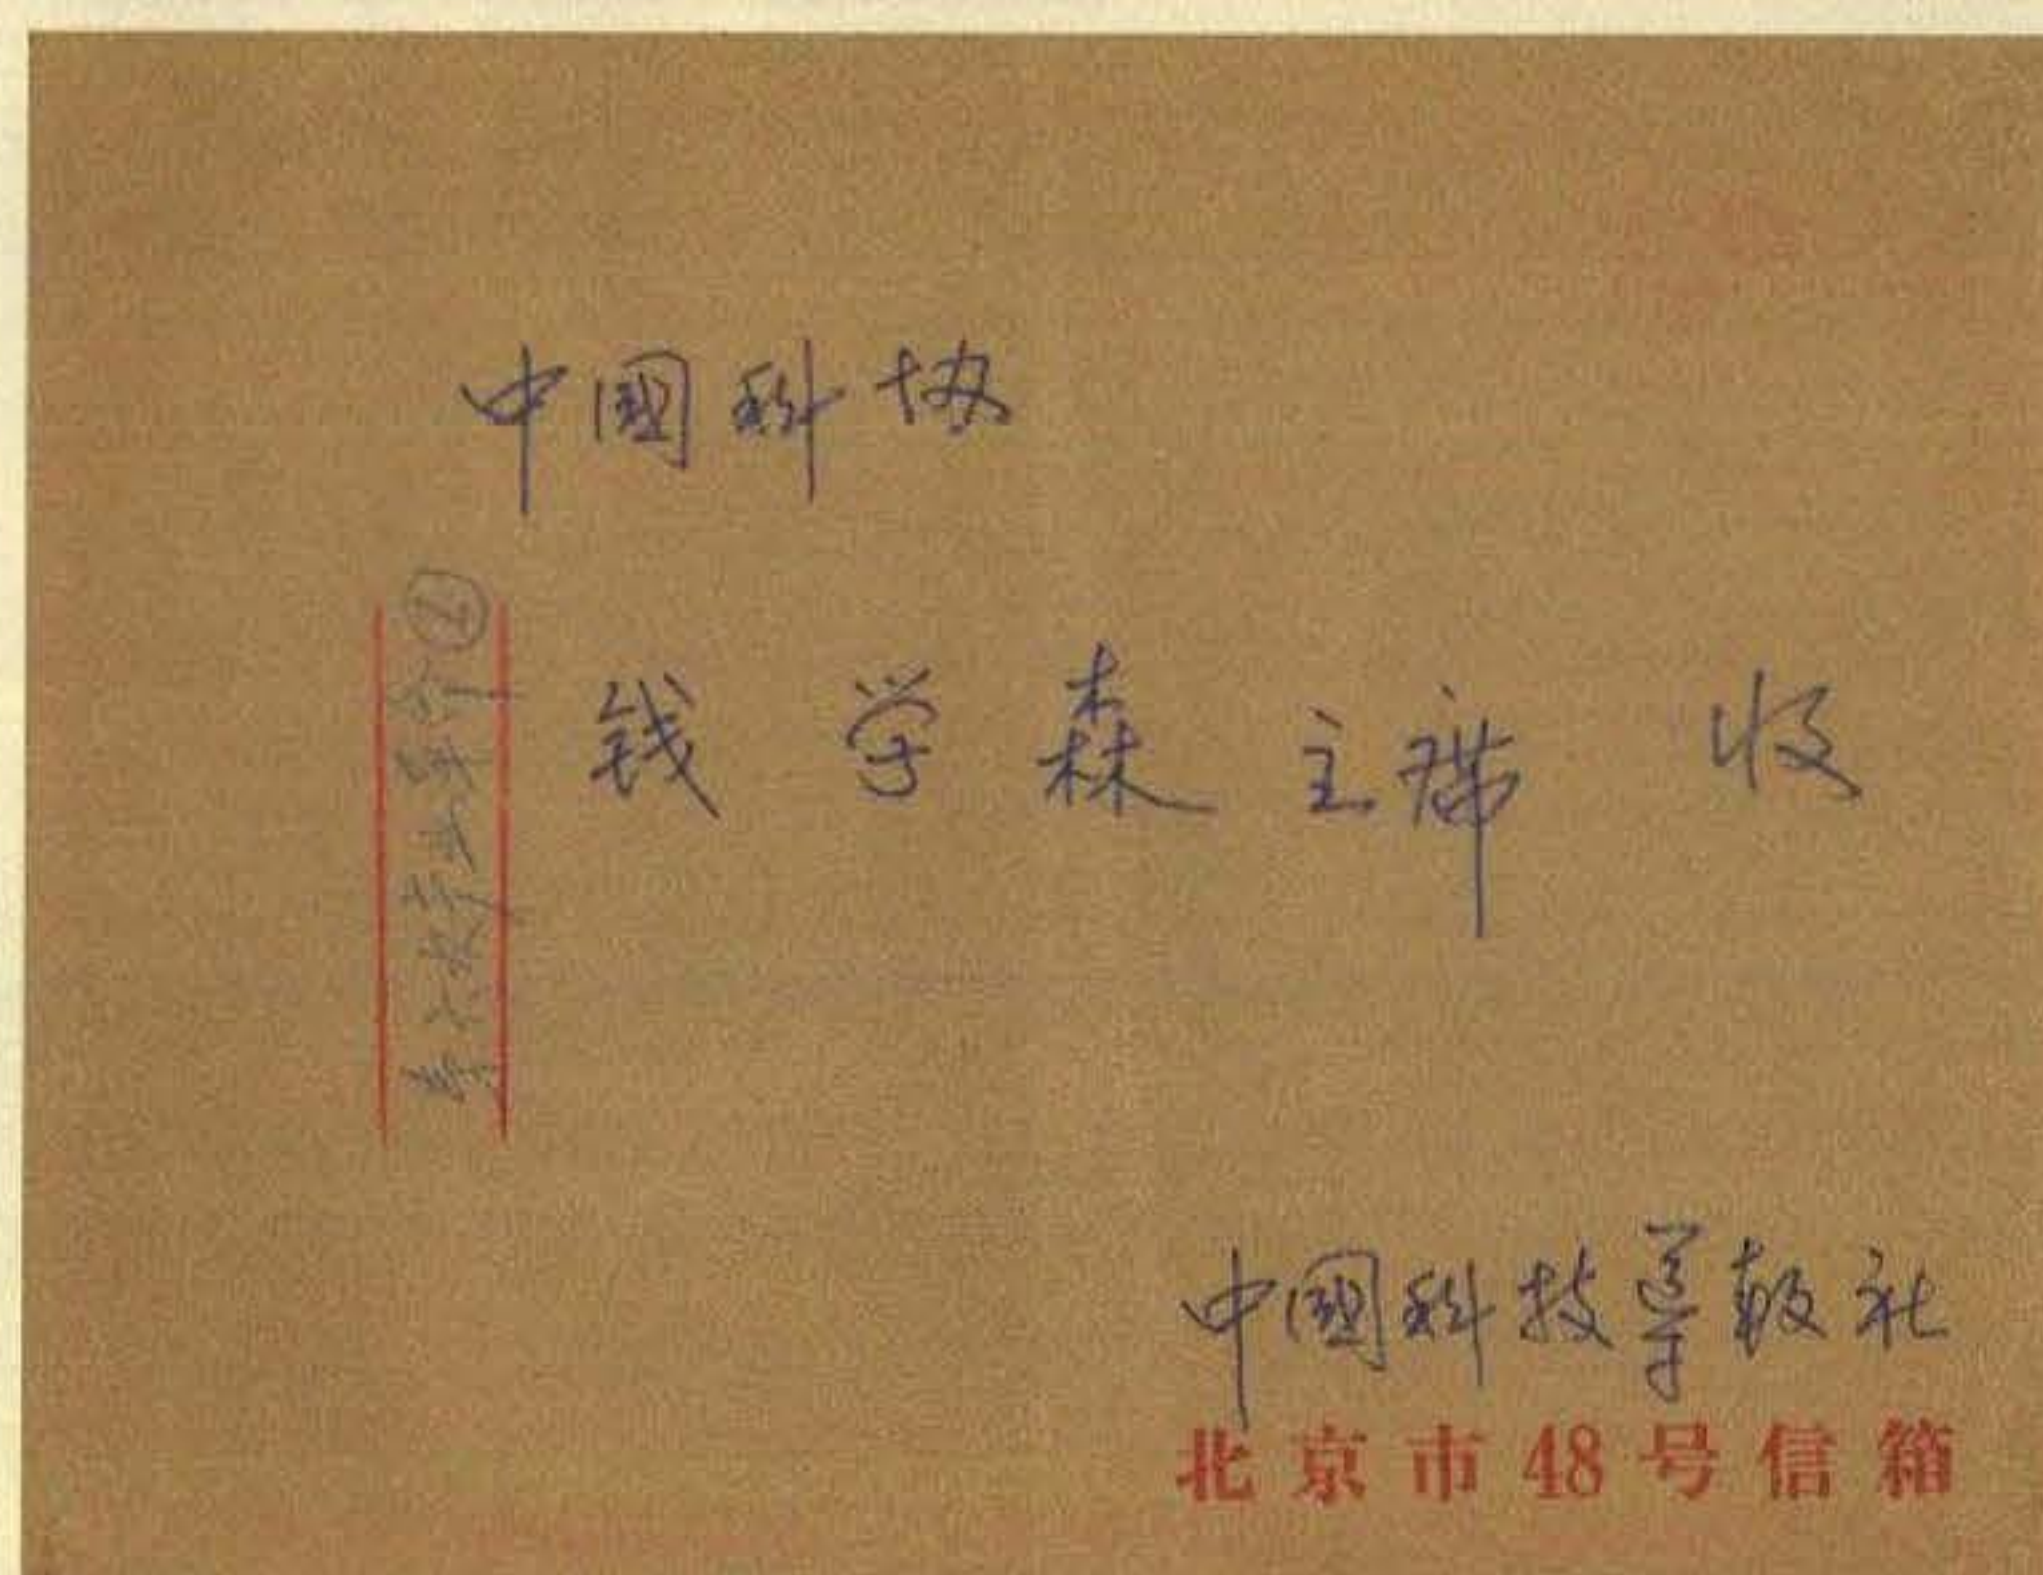 中國科协
钱学森主席 收
中國科技导報社
北京市48号信箱